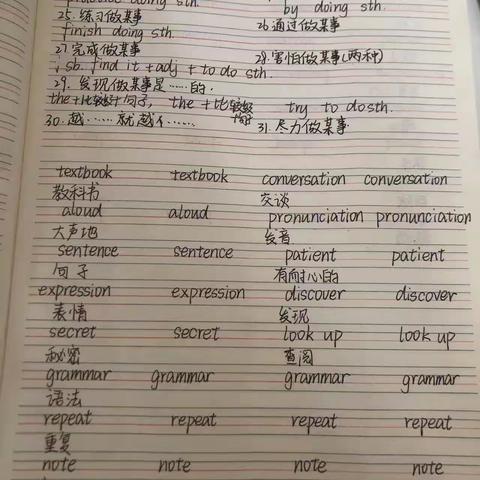 practice doing sth. by doing sth.
25. 练习做某事 26. 通过做某事
finish doing sth.
27. 完成做某事 28. 害怕做某事(两种)
sb. find it + adj + to do sth.
29. 发现做某事是……的.
the+比较级+句子, the +比较级 句子 try to do sth.
30. 越……就越…… 31. 尽力做某事
textbook textbook conversation conversation
教科书 交谈
aloud aloud pronunciation pronunciation
大声地 发音
sentence sentence patient patient
句子 有耐心的
expression expression discover discover
表情 发现
secret secret look up look up
秘密 查阅
grammar grammar grammar grammar
语法
repeat repeat repeat repeat
重复
note note note note